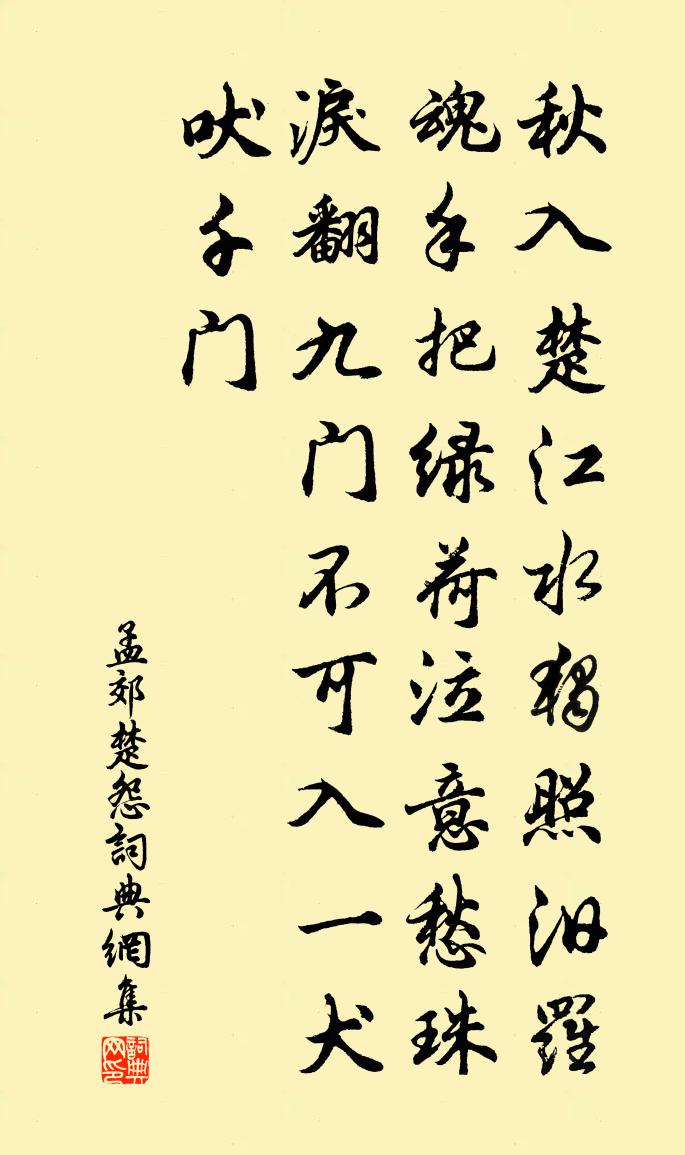 秋入楚江水獨照汨羅
魂手把绿荷泣意愁珠
淚翻九门不可入一犬
吠千门
孟郊楚怨詞典網集
詞典网印